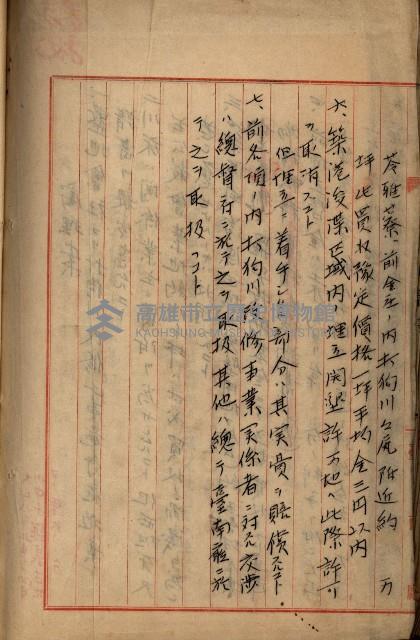 苓雅藔、前金庄ノ內打狗川ニ瀕スル附近約 万
坪此買收豫定價格一坪平均金三円以內
六、築港浚渫區域內ノ埋立開墾許可地ハ此際許可
ヲ取消スコト
但埋立ニ着手シタル部分ハ其実費ヲ賠償スルコト
七、前各項ノ內打狗川改修事業関係者ニ対スル交渉
ハ總督府ニ於テ之ヲ取扱其他ハ總テ臺南廳ニ於
テ之ヲ取扱フコト
高雄市立歷史博物館
KAOHSIUNG MUSEUM OF HISTORY